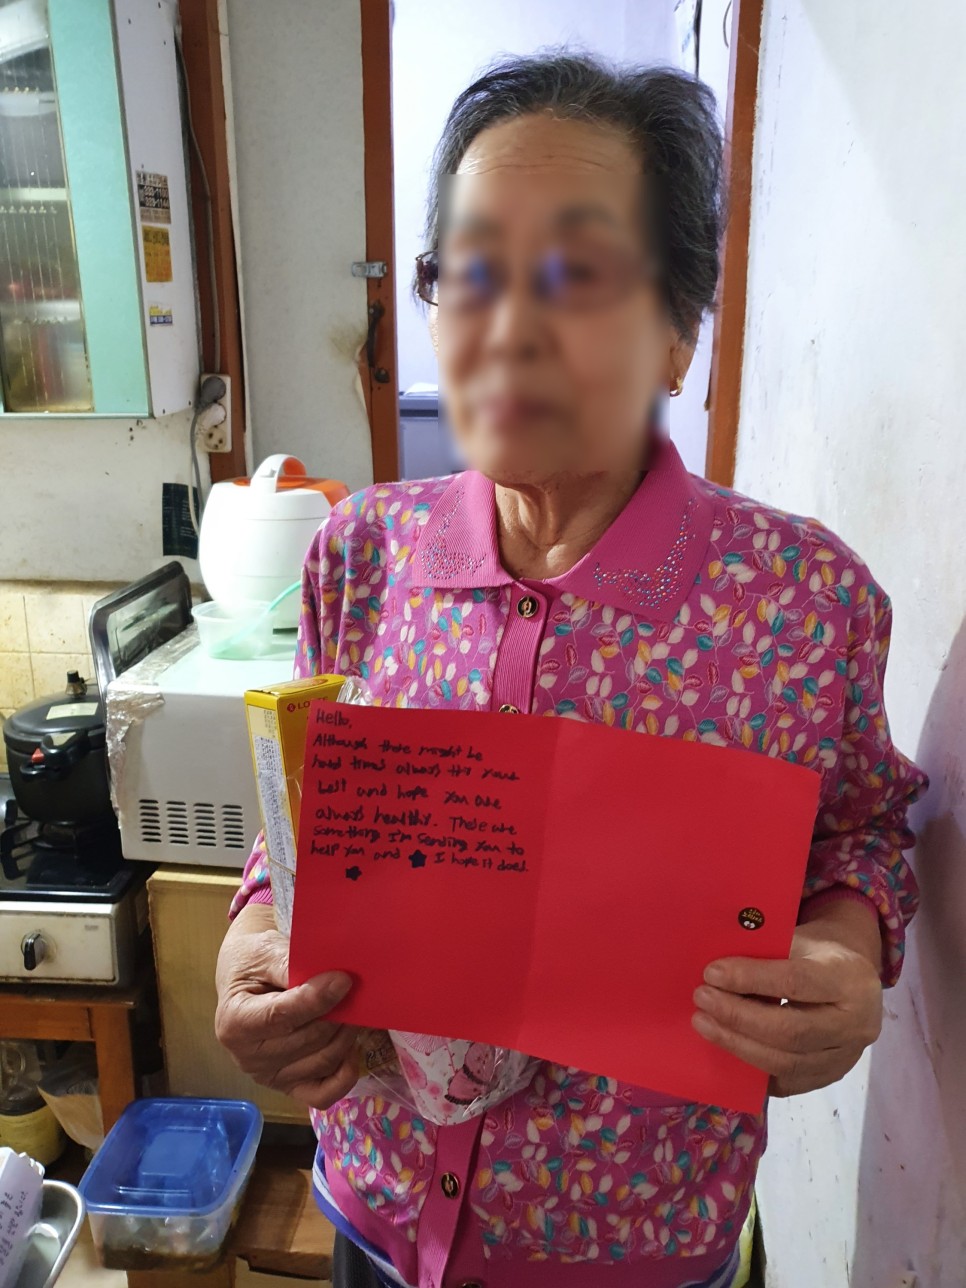 Hello,
Although there might be
hard times always try your
best and hope you are
always healthy. These are
something I'm sending you to
help you and ★ I hope it does.
★
LO